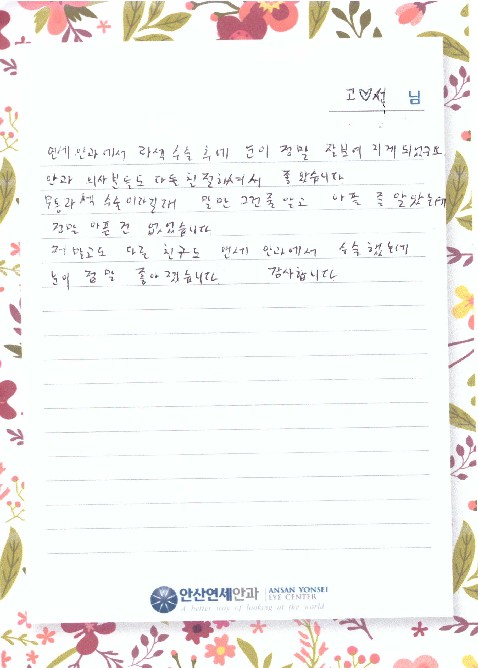 고♡석 님
연세안과에서 라섹 수술 후에 눈이 정말 잘보여 지게 되었구요
안과 의사분들도 다들 친절하셔서 좋았습니다
무통라섹 수술이라길래 말만 그런줄 알고 아플 줄 알았는데
정말 아픈건 없었습니다
저 말고도 다른 친구도 연세안과에서 수술했는데
눈이 정말 좋아졌습니다 감사합니다
안산연세안과 ANSAN YONSEI EYE CENTER
A better way of looking at the world